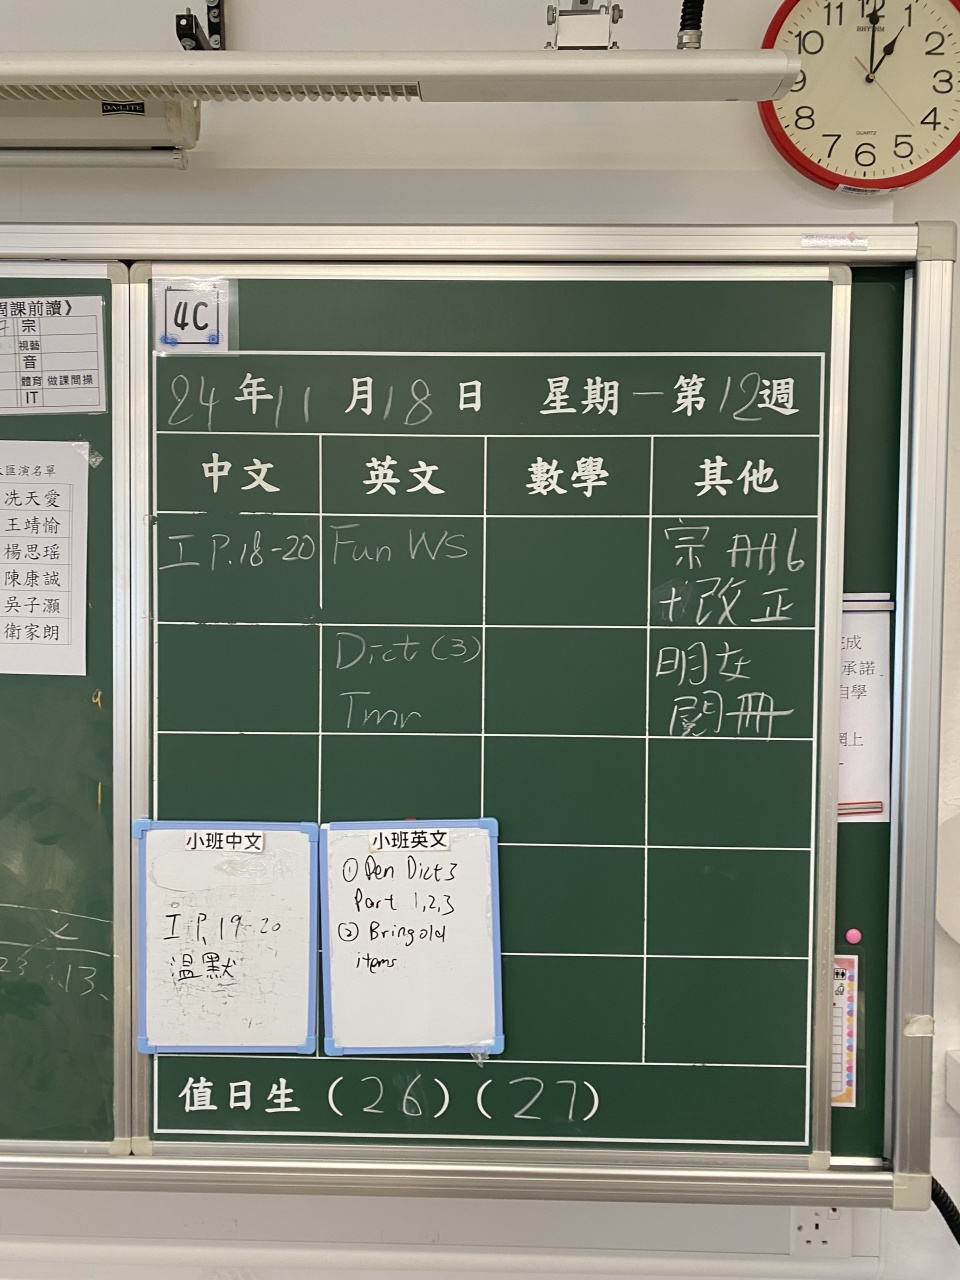 11 12 1
10 2
9 3
8 4
7 6 5
RHYTHM
QUARTZ
DA-LITE
課前讀》
宗
視藝
音
體育 做課間操
IT
匯演名單
冼天愛
王靖愉
楊思瑶
陳康誠
吳子灝
衛家朗
4C
24年11月18日 星期一第12週
中文 英文 數學 其他
工 P.18-20 Fun WS 宗 冊6
+改正
Dict (3) 明交
Tmr 閱冊
小班中文
工 P.19-20
溫默
小班英文
① Pen Dict 3
Part 1,2,3
② Bring old
items
值日生 (26) (27)
成
承諾
自學
網上